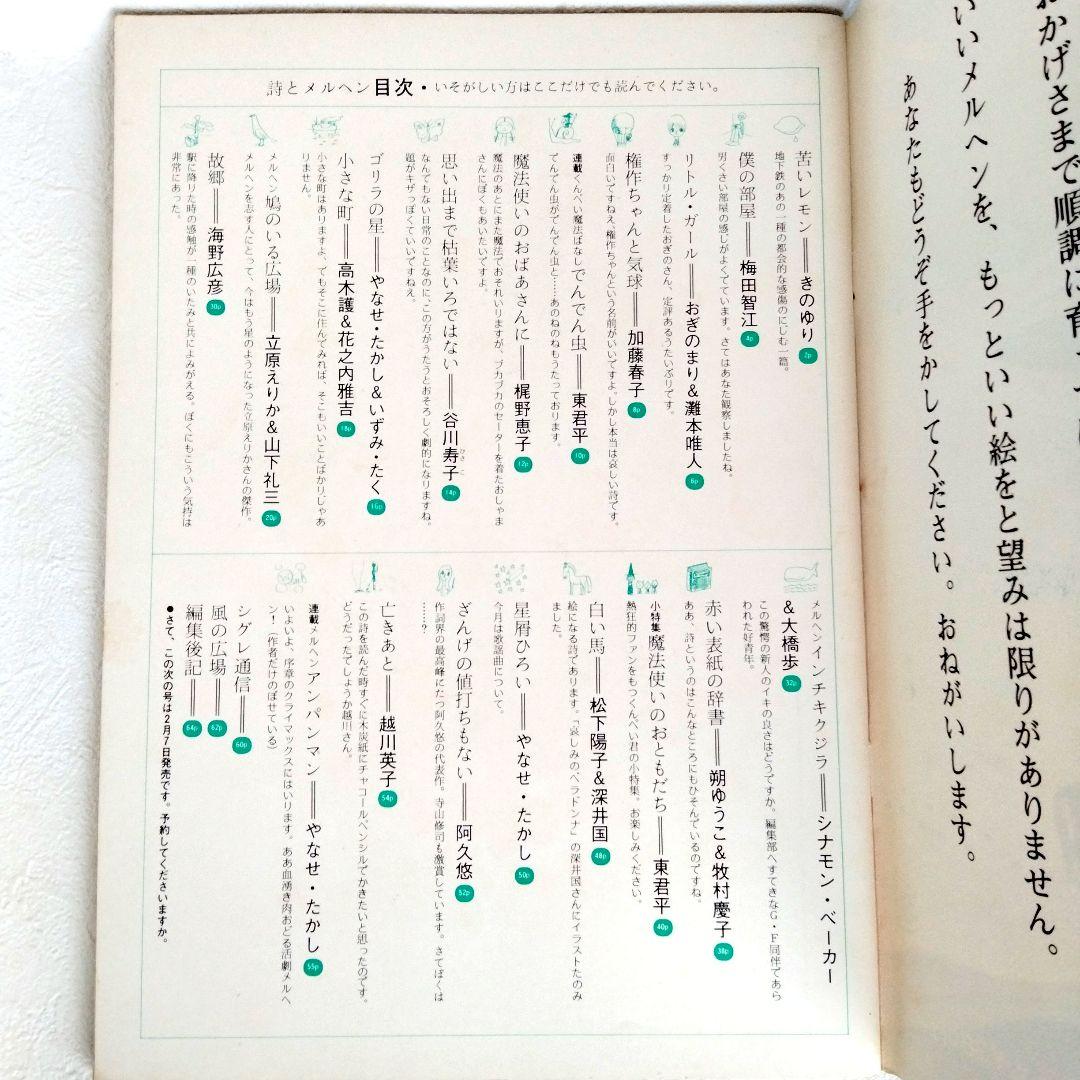 おかげさまで順調に育
いいメルヘンを、もっといい絵をと望みは限りがありません。
あなたもどうぞ手をかしてください。おねがいします。
詩とメルヘン目次・いそがしい方はここだけでも読んでください。
苦いレモン══きのゆり 2p
地下鉄のあの一種の都会的な感傷のにじむ一篇。
僕の部屋══梅田智江 4p
男くさい部屋の感じがよくでています。さてはあなた観察しましたね。
リトル・ガール══おぎのまり&灘本唯人 6p
すっかり定着したおぎのさん、定評あるうたいぶりです。
権作ちゃんと気球══加藤春子 8p
面白いですねえ、権作ちゃんという名前がいいですよ。しかし本当は哀しい詩です。
連載くんぺい魔法ばなしでんでん虫══東君平 10p
でんでん虫がでんでん虫と……あのねのねもうたっております。
魔法使いのおばあさんに══梶野恵子 12p
魔法のあとにまた魔法でおそれいりますが、ブカブカのセーターを着たおしゃま
さんにぼくもあいたいですよ。
思い出まで枯葉いろではない══谷川寿子 14p
ひさこ
なんでもない日常のことなのに、この方がうたうとおそろしく劇的になりますね。
題がキザっぽくていいですねえ。
ゴリラの星══やなせ・たかし&いずみ・たく 16p
小さな町══高木護&花之内雅吉 18p
小さな町はありますよ、でもそこに住んでみれば、そこもいいことばかりじゃあ
りません。
メルヘン鳩のいる広場══立原えりか&山下礼三 20p
メルヘンを志す人にとって、今はもう星のようになった立原えりかさんの傑作。
故郷══海野広彦 30p
駅に降りた時の感触が一種のいたみと共によみがえる。ぼくにもこういう気持は
非常にあった。
メルヘンインチキクジラ══シナモン・ベーカー
&大橋歩 32p
この驚愕の新人のイキの良さはどうですか。編集部へすてきなG・F同伴であら
われた好青年。
赤い表紙の辞書══朔ゆうこ&牧村慶子 38p
ああ、詩というのはこんなところにもひそんでいるのですね。
小特集魔法使いのおともだち══東君平 40p
熱狂的ファンをもつくんぺい君の小特集。お楽しみください。
白い馬══松下陽子&深井国 48p
絵になる詩であります。「哀しみのベラドンナ」の深井国さんにイラストたのみ
ました。
星屑ひろい══やなせ・たかし 50p
今月は歌謡曲について。
ざんげの値打ちもない══阿久悠 52p
作詞界の最高峰にたつ阿久悠の代表作。寺山修司も激賞しています。さてぼくは
……?
亡きあと══越川英子 54p
この詩を読んだ時すぐに木炭紙にチャコールペンシルでかきたいと思ったのです。
どうだったでしょうか越川さん。
連載メルヘンアンパンマン══やなせ・たかし 55p
いよいよ、序章のクライマックスにはいります。ああ血湧き肉おどる活劇メルヘ
ン!(作者だけのぼせている)
シグレ通信══60p
風の広場══62p
編集後記══64p
●さて、この次の号は2月7日発売です。予約してくださいますか。